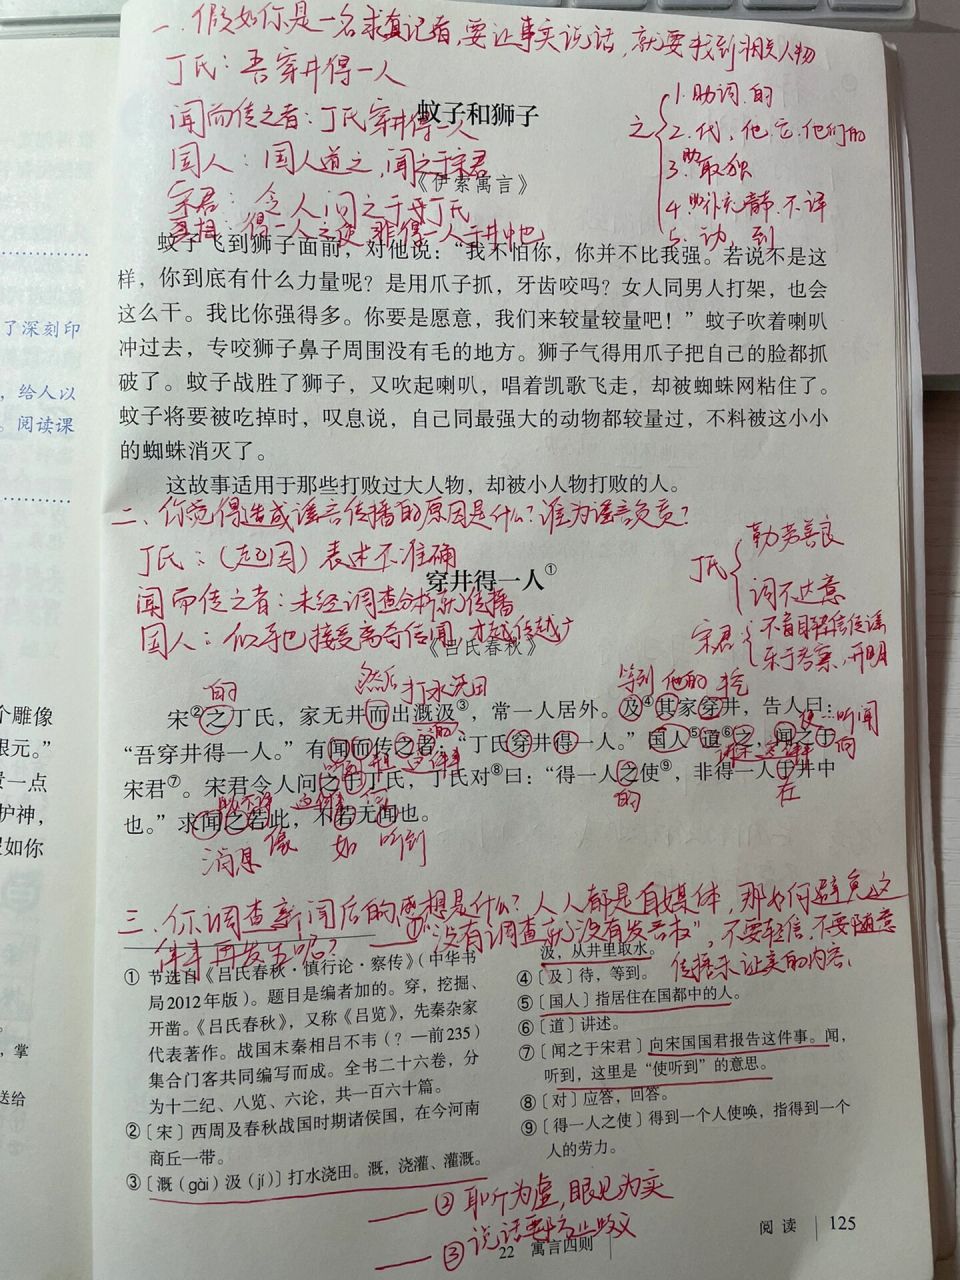 一、假如你是一名求真记者,要让事实说话,就要找到相关人物
丁氏:吾穿井得一人
闻而传之者:丁氏穿井得一人
国人:国人道之,闻之于宋君
宋君:令人问之于丁氏
真相:得一人之使,非得一人于井中也
之
1.助词.的
2.代,他.它.他们的
3.助取独
4.助补充音节.不译
5.动,到
蚊子和狮子
《伊索寓言》
蚊子飞到狮子面前,对他说:“我不怕你,你并不比我强。若说不是这
样,你到底有什么力量呢?是用爪子抓,牙齿咬吗?女人同男人打架,也会
这么干。我比你强得多。你要是愿意,我们来较量较量吧!”蚊子吹着喇叭
冲过去,专咬狮子鼻子周围没有毛的地方。狮子气得用爪子把自己的脸都抓
破了。蚊子战胜了狮子,又吹起喇叭,唱着凯歌飞走,却被蜘蛛网粘住了。
蚊子将要被吃掉时,叹息说,自己同最强大的动物都较量过,不料被这小小
的蜘蛛消灭了。
这故事适用于那些打败过大人物,却被小人物打败的人。
二、你觉得造成谣言传播的原因是什么?谁为谣言负责?
丁氏:(起因)表述不准确
闻而传之者:未经调查分析就传播
国人:似乎也接受离奇传闻,才越传越广
丁氏
勤劳善良
词不达意
宋君
不盲目轻信传谣
乐于考察,开明
穿井得一人①
《吕氏春秋》
的 然后 打水浇田 等到 他的 挖
宋②之丁氏,家无井而出溉汲③,常一人居外。及④其家穿井,告人曰:
使…听闻
“吾穿井得一人。”有闻而传之者:“丁氏穿井得一人。”国人⑤道⑥之,闻之于
讲述 这件事 向
宋君⑦。宋君令人问之于丁氏,丁氏对⑧曰:“得一人之使⑨,非得一人于井中
的 在
也。”求闻之若此,不若无闻也。
消息 像 如 听到
三、你调查新闻后的感想是什么?人人都是自媒体,那如何避免这
件事再发生呢?
——①“没有调查就没有发言权”,不要轻信,不要随意
传播未证实的内容.
① 节选自《吕氏春秋·慎行论·察传》(中华书
局2012年版)。题目是编者加的。穿,挖掘、
开凿。《吕氏春秋》,又称《吕览》,先秦杂家
代表著作。战国末秦相吕不韦(?—前235)
集合门客共同编写而成。全书二十六卷,分
为十二纪、八览、六论,共一百六十篇。
② 〔宋〕西周及春秋战国时期诸侯国,在今河南
商丘一带。
③ 〔溉(gài)汲(jí)〕打水浇田。溉,浇灌、灌溉。
汲,从井里取水。
④ 〔及〕待,等到。
⑤ 〔国人〕指居住在国都中的人。
⑥ 〔道〕讲述。
⑦ 〔闻之于宋君〕向宋国国君报告这件事。闻,
听到,这里是“使听到”的意思。
⑧ 〔对〕应答,回答。
⑨ 〔得一人之使〕得到一个人使唤,指得到一个
人的劳力。
——② 耳听为虚,眼见为实
——③ 说话要防止歧义
22 寓言四则
阅读 125
了深刻印
,给人以
。阅读课
个雕像
银元。”
贵一点
护神,
假如你
,掌
送给